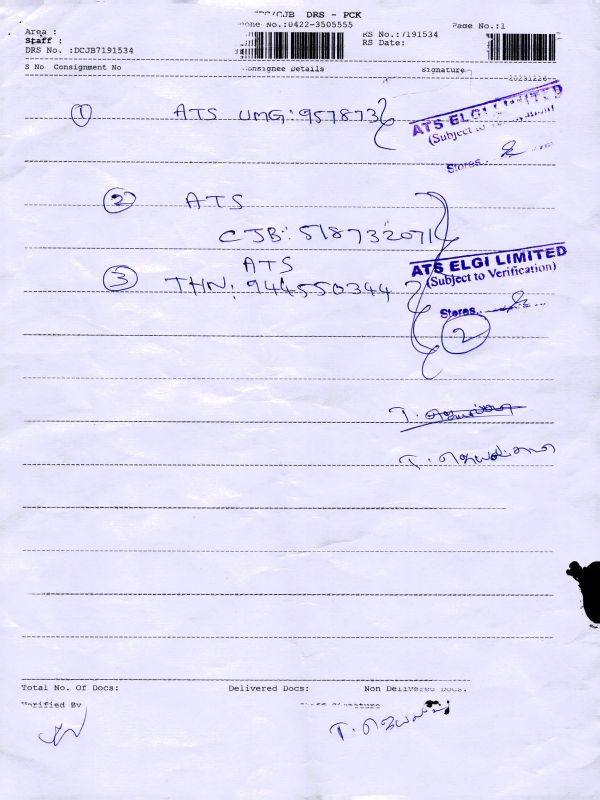 /CJB DRS - PCK
No.:0422-3505555
Page No.:1
Area :
RS No.:7191534
Staff :
RS Date:
DRS No. :DCJB7191534
S No Consignment No
Consignee Details
Signature
20231226
① ATS UMG: 957873
ATS ELGI LIMITED
(Subject to
Stores.
② ATS
CJB: 518732071
③ ATS
THN: 944550344
ATS ELGI LIMITED
(Subject to Verification)
Stores.
②
Total No. Of Docs:
Delivered Docs:
Non Delivered Docs:
Verified By
Signature